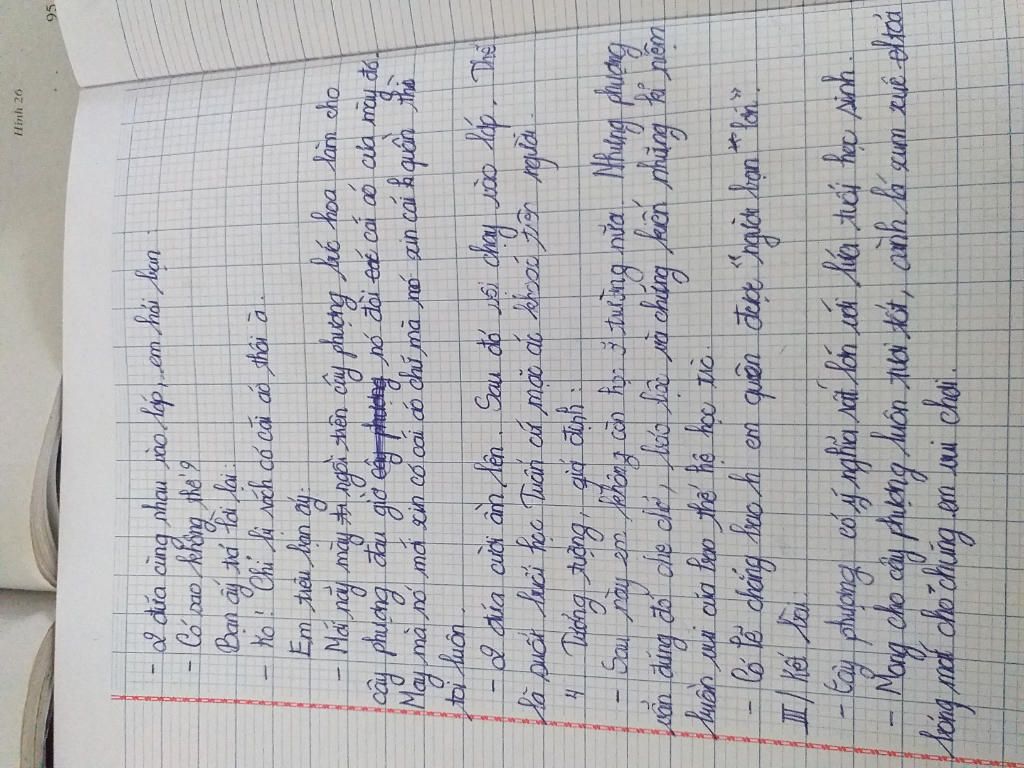 95
Hình 26
- 2 đứa cùng nhau vào lớp, em hỏi bạn.
- Có sao không thế?
Bạn ấy trả lời lại:
- Ko! Chỉ bị rách có cái áo thôi à.
Em trêu bạn ấy:
- Nãi nãy mày ngồi trên cây phượng bẻ hoa làm cho
cây phượng đau giờ nó đòi cái áo của mày đó.
May mà nó mới xin có cái áo chứ mà nó xin cái quần thì
tồi luôn.
- 2 đứa cười ầm lên. Sau đó rồi chạy vào lớp. Thế
là suốt buổi học Tuấn cứ mặc áo khoác trên người.
4 Tưởng tượng, giả định:
- Sau này em không còn học ở trường nữa. Nhưng phượng
vẫn đứng đó che chở, lưu lạc và chứng kiến những kỉ niệm
buồn vui của bao thế hệ học trò.
- Có lẽ chẳng bao h em quên được "người bạn lớn".
III/ Kết bài:
- Cây phượng có ý nghĩa rất lớn với lứa tuổi học sinh.
- Mong cho cây phượng luôn tươi tốt, cành lá xum xuê
bóng mát cho chúng em vui chơi.